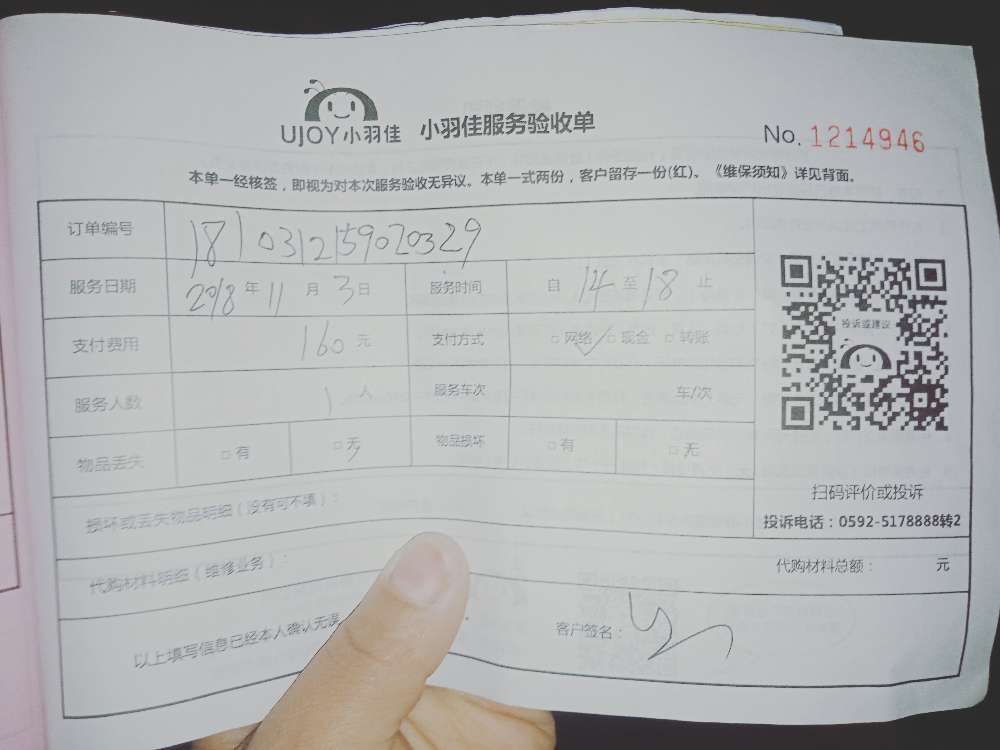 UJOY小羽佳 小羽佳服务验收单
No. 1214946
本单一经核签，即视为对本次服务验收无异议。本单一式两份，客户留存一份(红)。《维保须知》详见背面。
订单编号 1810312159020329
服务日期 2018年11月3日 服务时间 自14至18止
支付费用 160元 支付方式 □网络 □现金 □转账
服务人数 1人 服务车次 车/次
物品丢失 □有 □无 物品损坏 □有 □无
投诉或建议
扫码评价或投诉
投诉电话：0592-5178888转2
损坏或丢失物品明细（没有可不填）：
代购材料明细（维修业务）： 代购材料总额： 元
以上填写信息已经本人确认无误 客户签名：